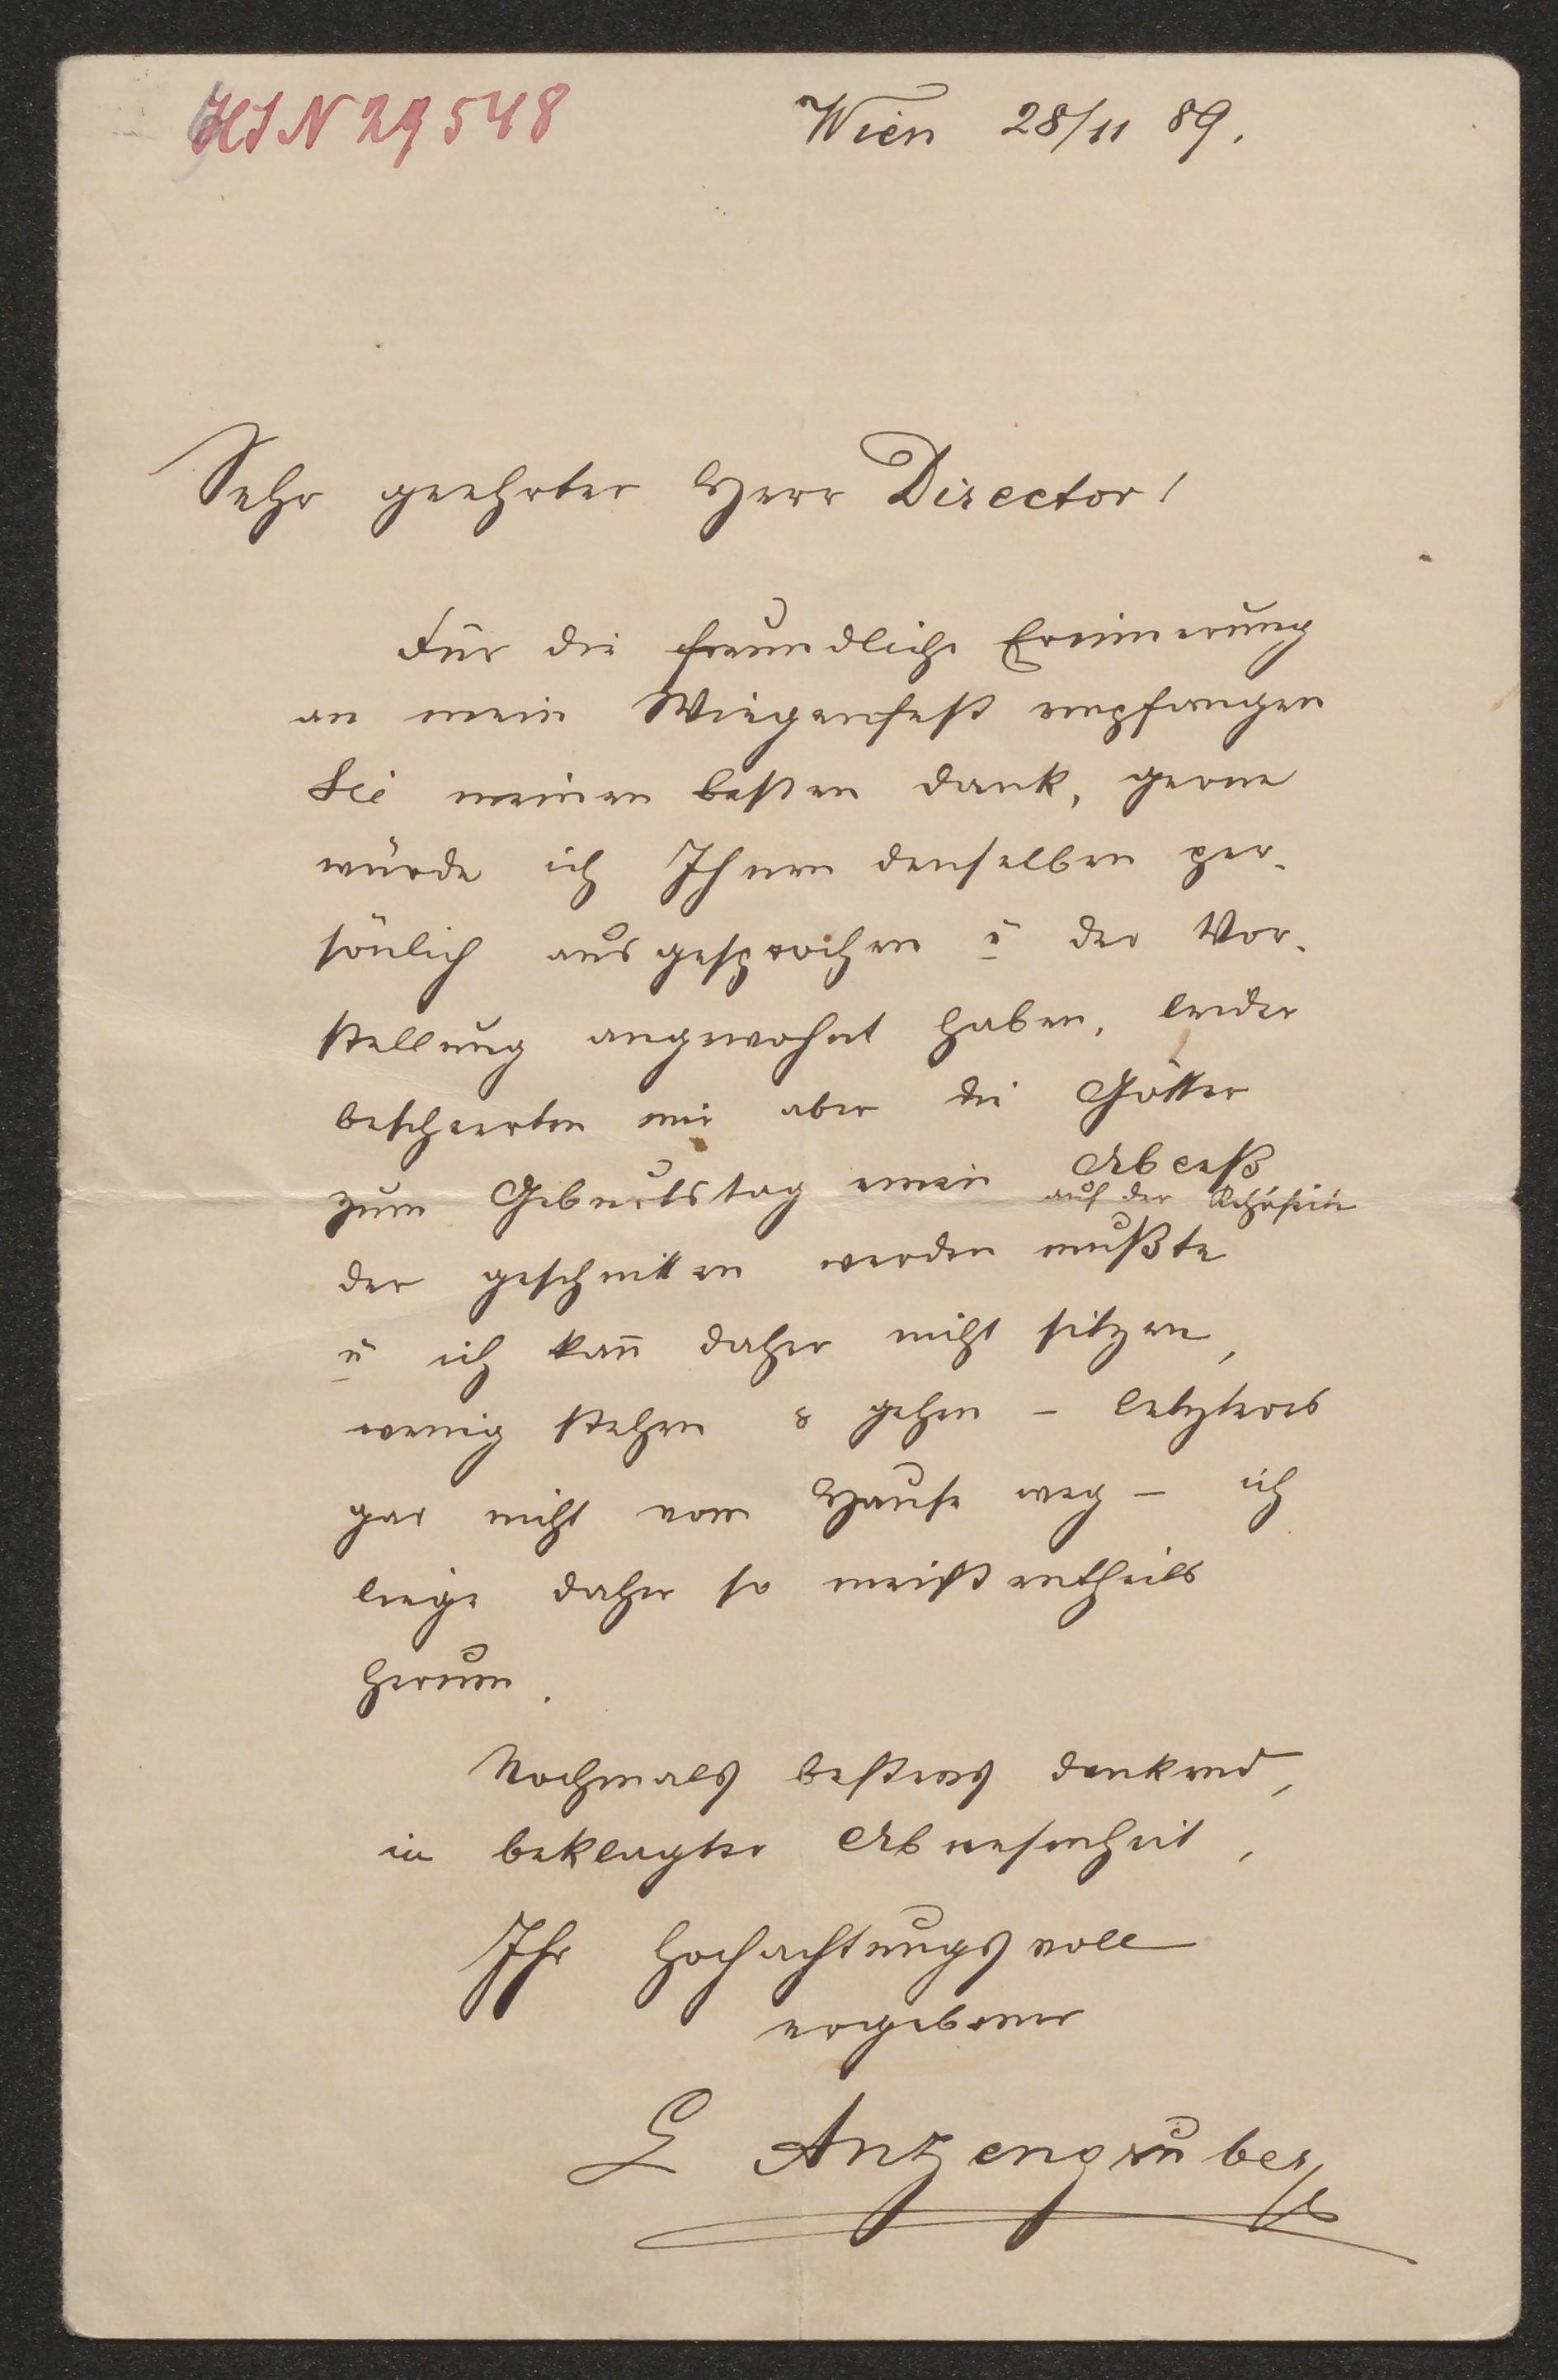 HIN 29548
Wien 28/11 89.
Sehr geehrter Herr Director!
Für die freundliche Erinnerung
an mein Wiegenfest empfangen
Sie meinen besten Dank, gerne
würde ich Ihnen denselben per-
sönlich ausgesprochen u der Vor-
stellung angewohnt haben, leider
bescheerten mir aber die Götter
zum Geburtstag einen Abceß
auf der Kehrseite
der geschnitten werden mußte
u ich kan̄ daher nicht sitzen,
wenig stehen & gehen – letzteres
gar nicht vom Hause weg – ich
liege daher so meistentheils
herum.
Nochmals bestens dankend,
in beklagter Abwesenheit,
Ihr hochachtungsvoll
ergebener
L Anzengruber